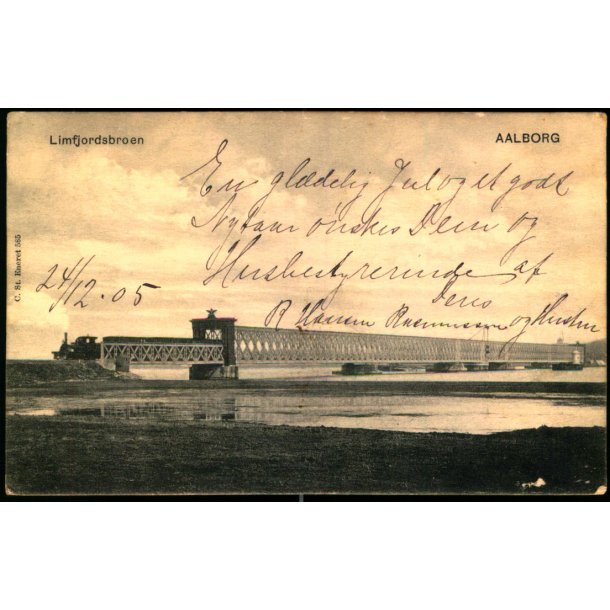 Limfjordsbroen
AALBORG
En glædelig Jul og et godt
Nytaar ønskes Dem og
Husbestyrerinde af
Deres
24/12. 05
R Hansen Rasmussen og Hustru
C. St. Eneret 585